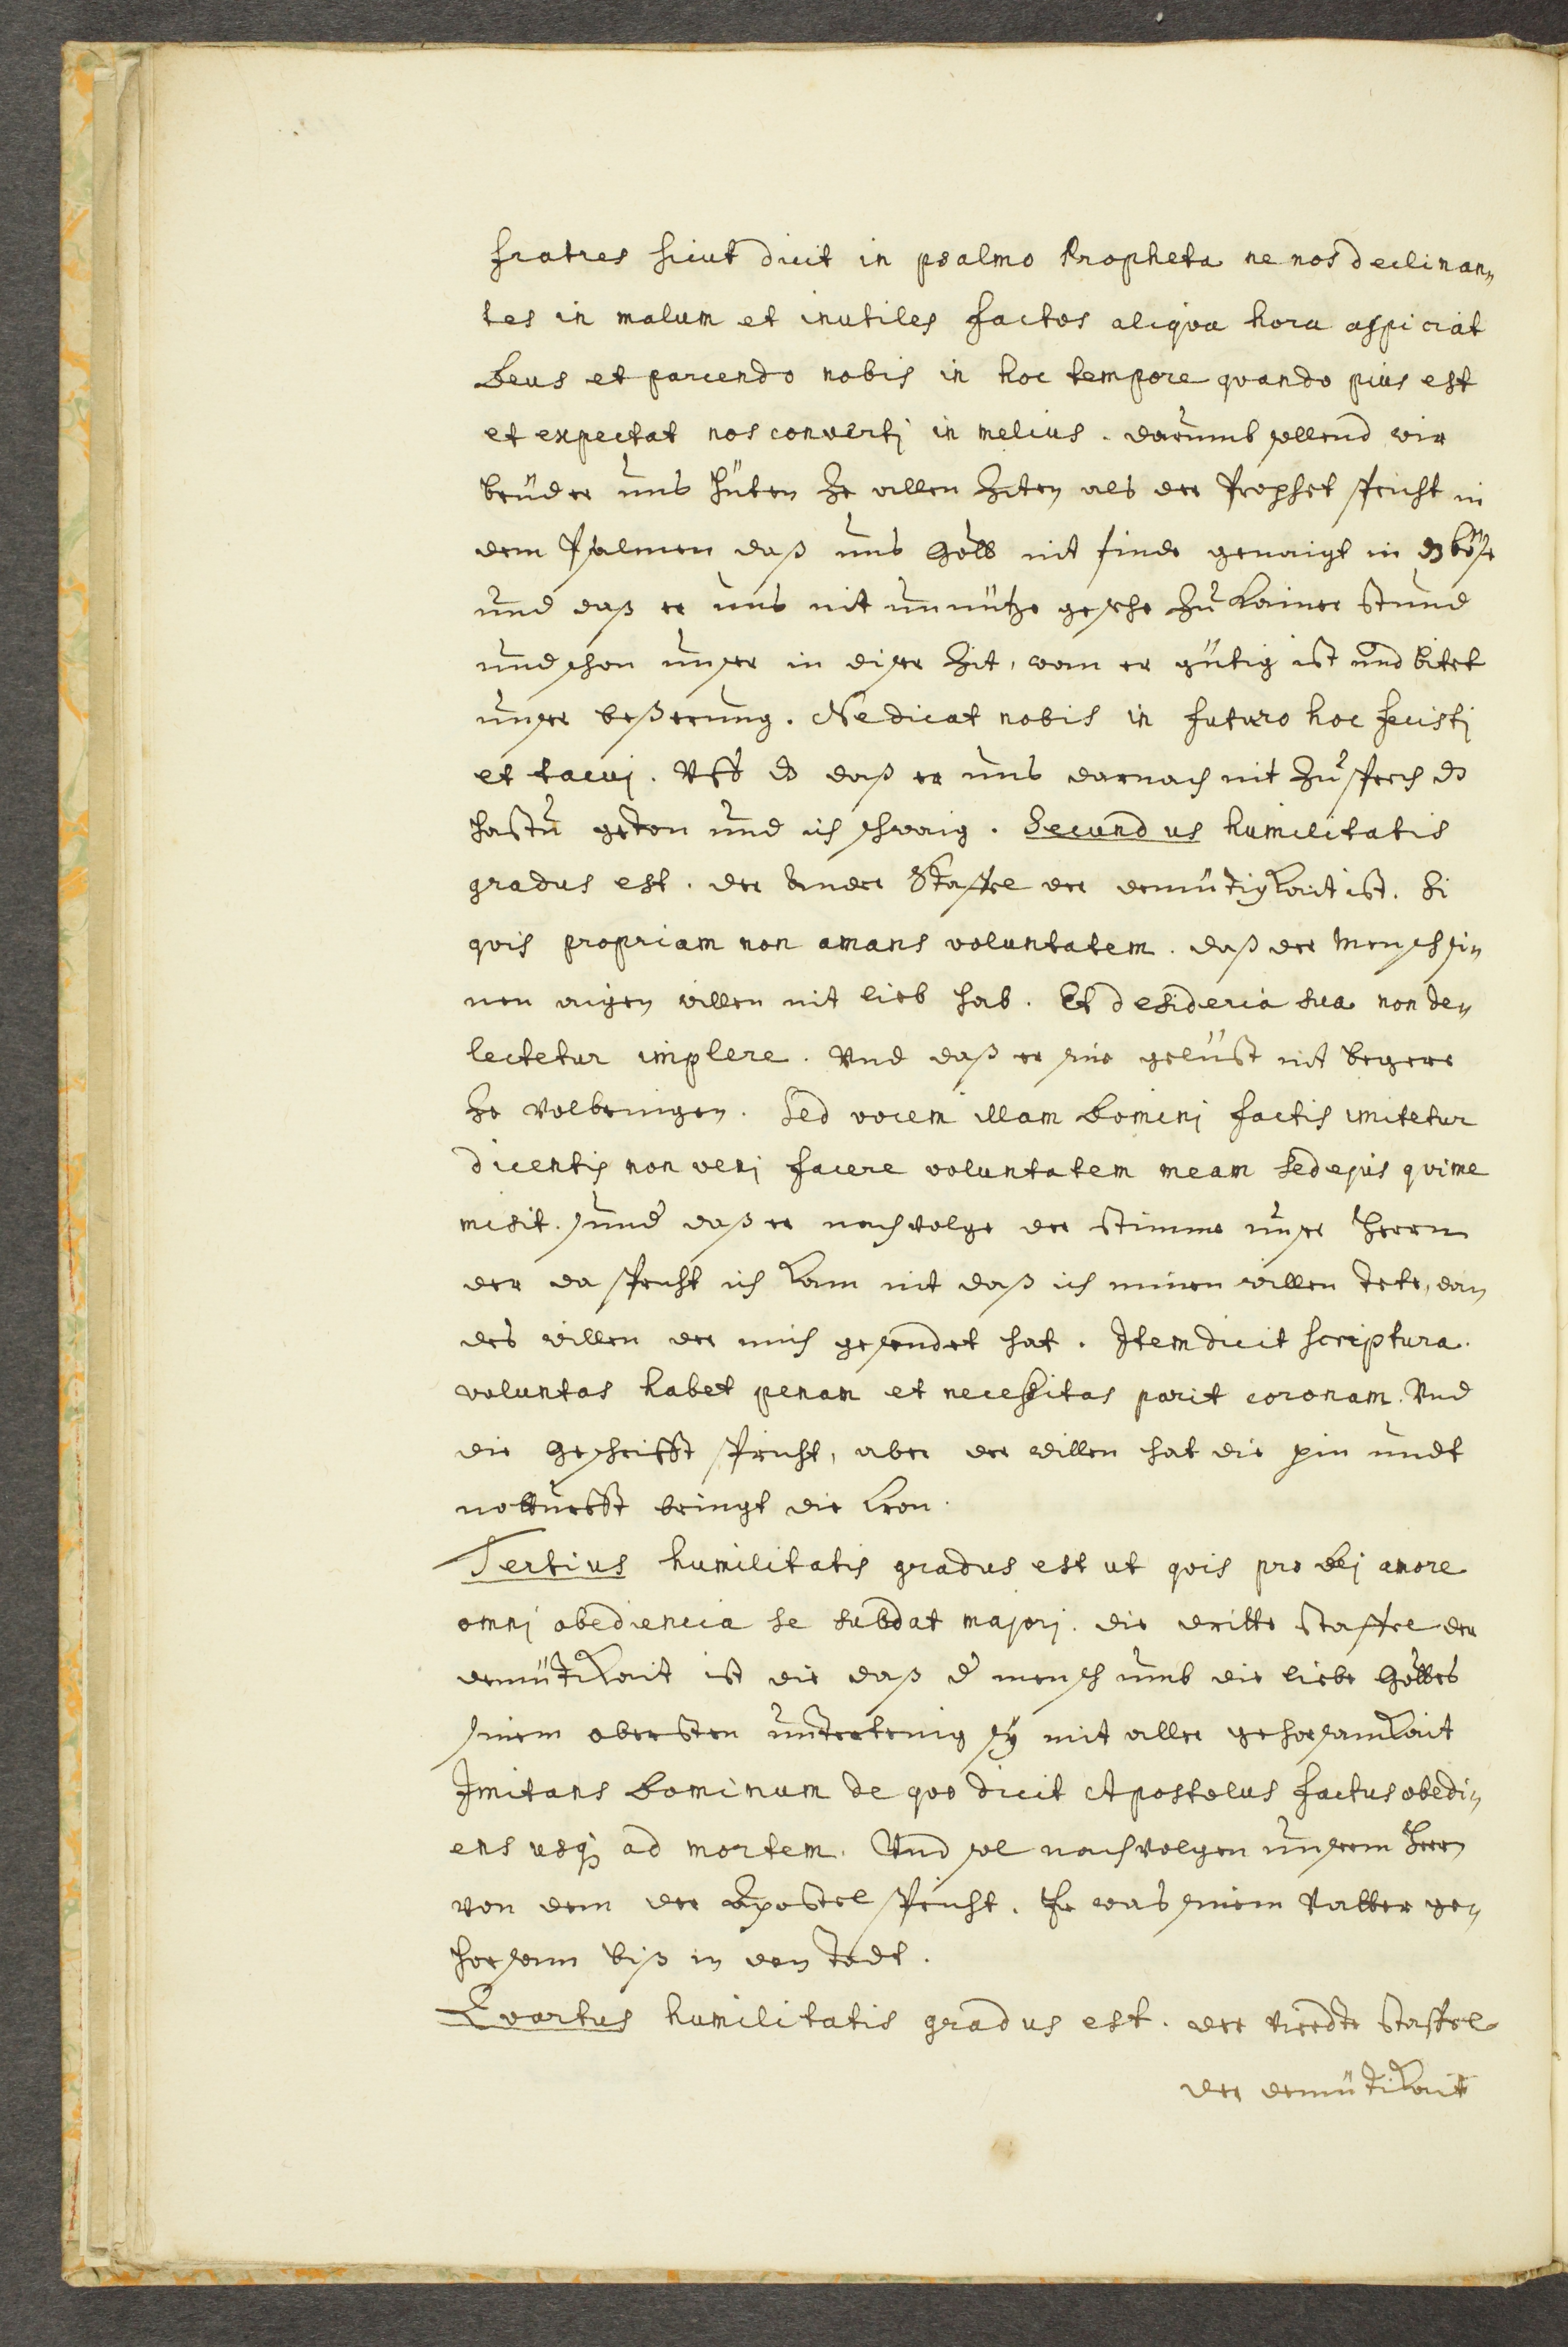 fratres sicut dicit in psalmo Propheta ne nos declinan„
tes in malum et inutiles factos aliqva hora aspiciat
Deus et parcendo nobis in hoc tempore qvando pius est
et expectat nos convertj in melius. darumb sollend wir
brüder uns hüten ze allen Ziten als der Prophet spricht in
dem Psalmen daß uns Gott nit finde genaigt in dz böse
und daß er uns nit unnütze gesehe zu kainer stund
und schon unser in diser Zit, wan er gütig ist und bitet
unser beßerung. Ne dicat nobis in futuro hoc fecistj
et tacuj. Uff dz daß er uns darnach nit zu sprech dz
hastu geton und ich schwaig. Secundus humilitatis
gradus est. der ander Staffel der demütigkait ist. Si
qvis propriam non amans voluntatem. daß der mensch si„
nen aigen willen nit lieb hab. Et desideria sua non de„
lectetur implere. Und daß er sine gelüst nit begere
ze volbringen. Sed vocem illam Dominj factis imitetur
dicentis non venj facere voluntatem meam sed ejus qvi me
misit. und daß er nachvolge der stimme unser Herrn
der da spricht ich kam nit daß ich minen willen tete, dan
des willen der mich gesendet hat. Item dicit scriptura.
voluntas habet penam et necessitas parit coronam. Und
die Geschrifft spricht, aber der willen hat die pin undt
notturfft bringt die kron.
Tertius humilitatis gradus est ut qvis pro Dej amore
omnj obediencia se subdat majorj. die dritte staffel der
demütikait ist die daß d mensch umb die liebe Gottes
sinem obersten untertenig sÿ mit aller gehorsamkait
Imitans Dominum de qvo dicit Apostolus factus obedi„
ens usq ad mortem. Und sol nachvolgen unserm Herrn
von dem der Apostel spricht. Er was sinem Vatter ge„
horsam biß in den todt.
Qvartus humilitatis gradus est. der vierdte staffel
der demütikait